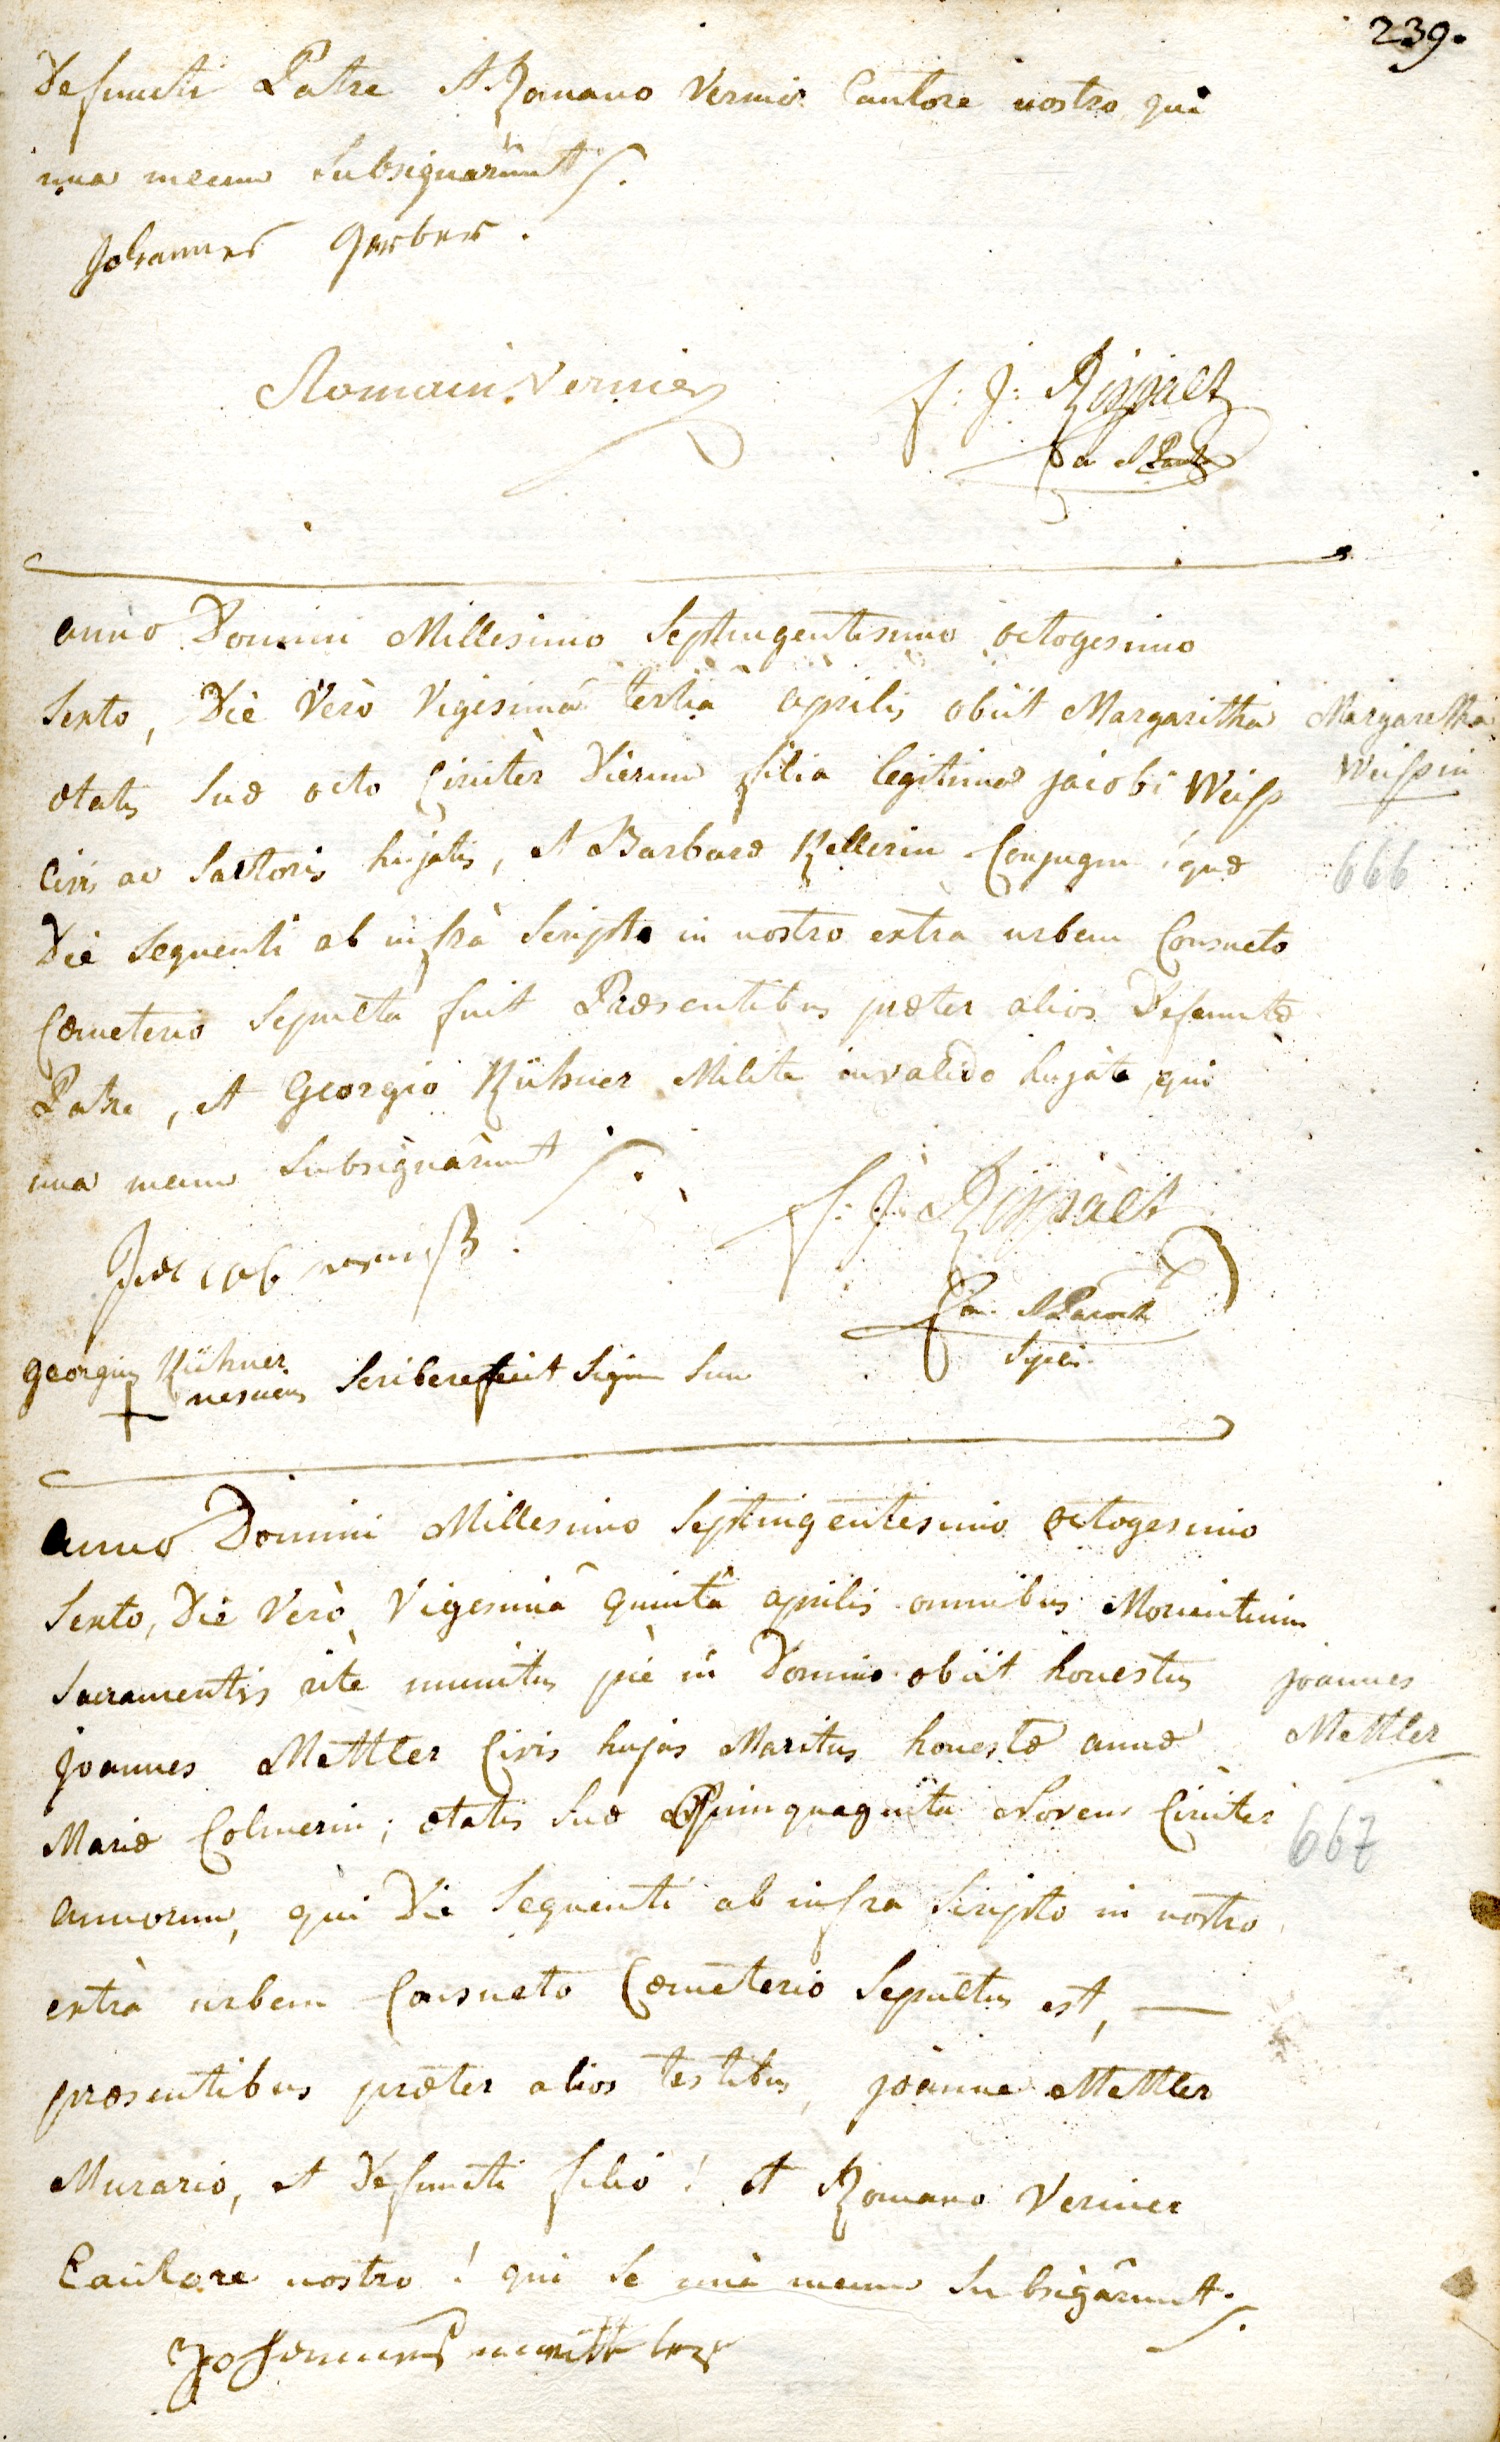 239.
Defuncti Patre et Romano Vernier Cantore nostro qui
una mecum subsignarunt
Johannes Gerber.
Romain Vernier
f: J: Rippalt
anno Domini Millesimo Septingentesimo octogesimo
Sexto, Die Verò Vigesimâ tertiâ aprilis obiit Margaritha
ætatis suæ octo Circitèr Dierum filia legitima jacobi Weiss
Civis ac Sartoris hujatis, et Barbaræ Kellerin Conjugum! quæ
Die sequenti ab infrà scripto in nostro extra urbem Consueto
Cœmeterio Sepulta fuit Præsentibus præter alios Defunctæ
Patre, et Georgio Kühner Milite invalido hujate, qui
una mecum subsignàrunt
Margaretha
Weissin
666
f: J: Rippalt
Georgius Kühner
nescius Scribere fecit Signum Suum
anno Domini Millesimo Septingentesimo octogesimo
Sexto, Die Verò Vigesimâ quintâ aprilis omnibus Morientium
Sacramentis ritè munitus piè in Domino obiit honestus
joannes Mettler Civis hujas Maritus honestæ annæ
Mariæ Colmerin; ætatis suæ Quinquaginta Novem Circiter
annorum, qui Die Sequenti ab infra Scripto in nostro
extrà urbem Consueto Cœmeterio Sepultus est, —
præsentibus præter alios testibus, joanne Mettler
Murario, et Defuncti filio! et Romano Vernier
Cantore nostro! qui se unà mecum Subsigârunt.
joannes
Mettler
667
Johannes mettler